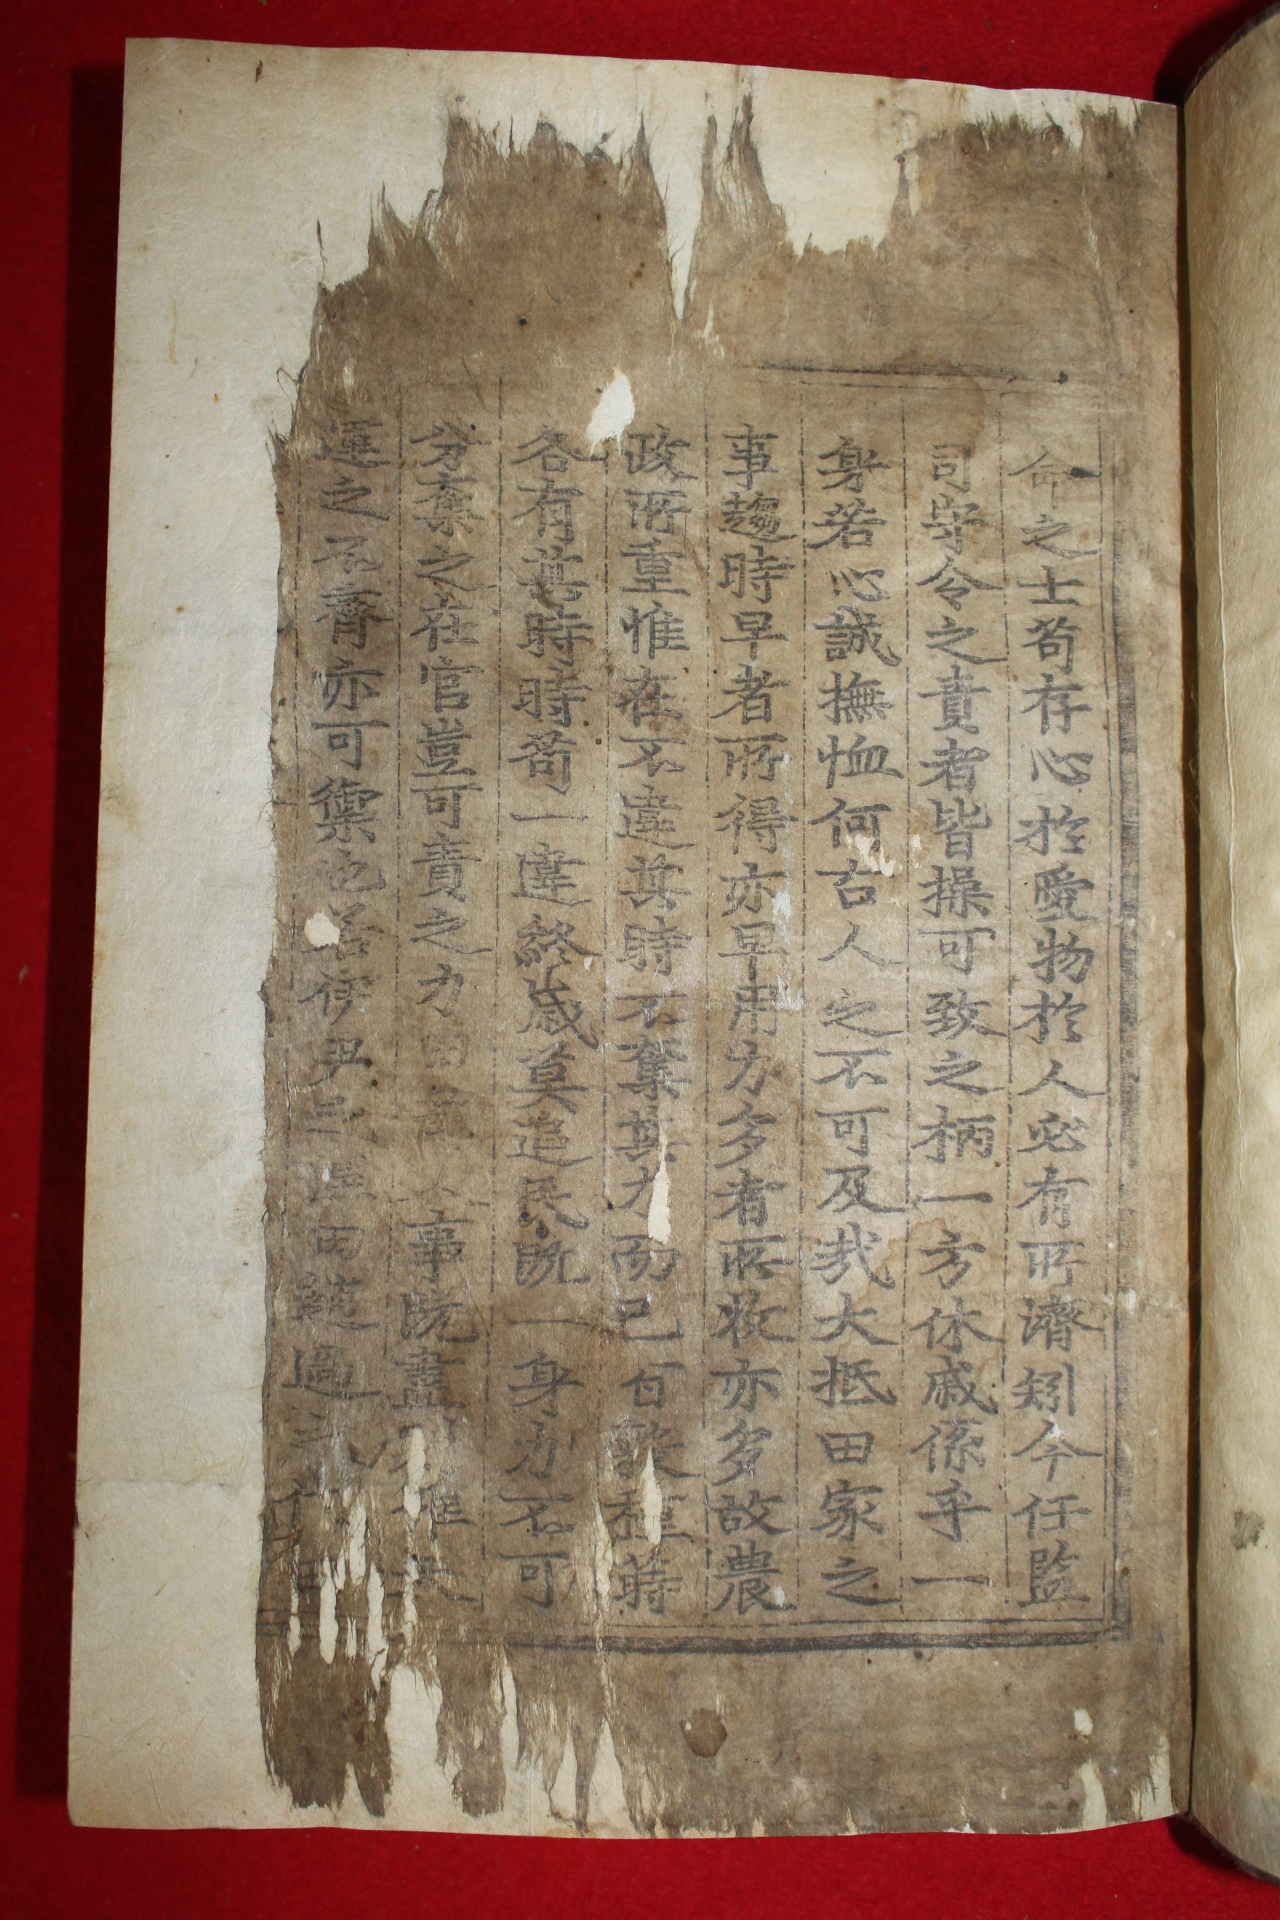 命之士苟存心於愛物於人必有所濟矧今任監
司守令之責者皆操可致之柄一方休戚係乎一
身若心誠撫恤何古人之不可及哉大抵田家之
事趨時早者所得亦早用力多者所收亦多故農
政所重惟在不違其時不奪其力而已百穀種蒔
各有其時時苟一違終歲莫追民旣一身力不可
分奪之在官豈可責之力田 人事旣盡 雖天
運之不齊亦可禦也若伊尹之 田 過